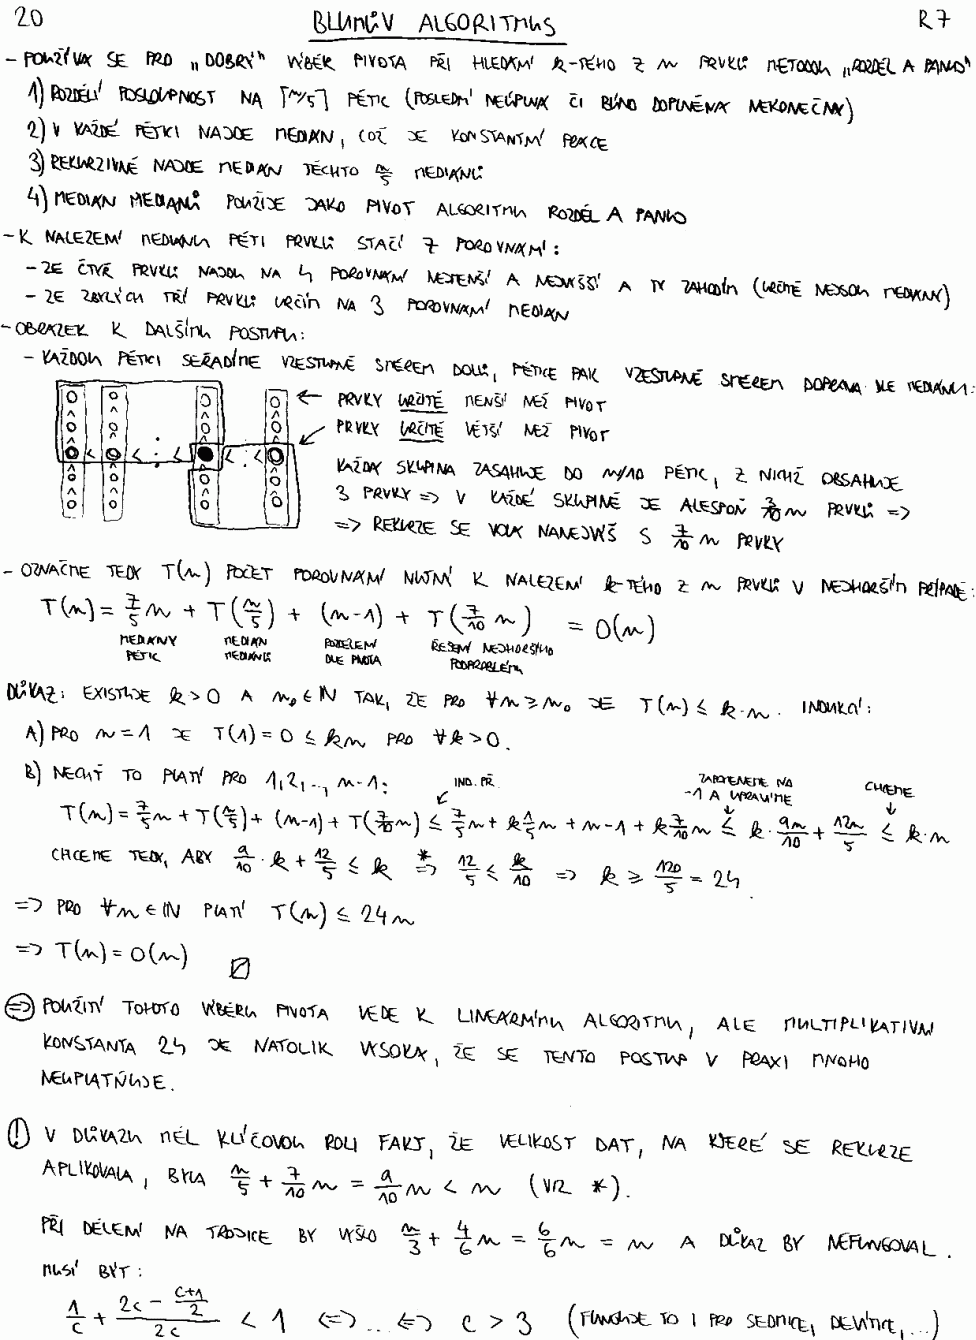 20 BLUMŮV ALGORITMUS R7
- POUŽÍVÁ SE PRO „DOBRÝ" VÝBĚR PIVOTA PŘI HLEDÁNÍ k-TÉHO Z n PRVKŮ METODOU „ROZDĚL A PANUJ"
1) ROZDĚLÍ POSLOUPNOST NA ⌈n/5⌉ PĚTIC (POSLEDNÍ NEÚPLNÁ ČI BÝNO DOPLNĚNA NEKONEČNY)
2) V KAŽDÉ PĚTICI NAJDE MEDIÁN, COŽ JE KONSTANTNÍ PRÁCE
3) REKURZIVNĚ NAJDE MEDIÁN TĚCHTO n/5 MEDIÁNŮ
4) MEDIÁN MEDIÁNŮ POUŽIJE JAKO PIVOT ALGORITMU ROZDĚL A PANUJ
- K NALEZENÍ MEDIÁNU PĚTI PRVKŮ STAČÍ 7 POROVNÁNÍ:
- ZE ČTYŘ PRVKŮ NAJDU NA 4 POROVNÁNÍ NEJMENŠÍ A NEJVĚTŠÍ A TY ZAHODÍM (URČITĚ NEJSOU MEDIÁNY)
- ZE ZBYLÝCH TŘÍ PRVKŮ URČÍM NA 3 POROVNÁNÍ MEDIÁN
- OBRÁZEK K DALŠÍMU POSTUPU:
- KAŽDOU PĚTICI SEŘADÍME VZESTUPNĚ SMĚREM DOLŮ, PĚTICE PAK VZESTUPNĚ SMĚREM DOPRAVA DLE MEDIÁNU:
← PRVKY URČITĚ MENŠÍ NEŽ PIVOT
PRVKY URČITĚ VĚTŠÍ NEŽ PIVOT
KAŽDÁ SKUPINA ZASAHUJE DO n/10 PĚTIC, Z NICHŽ OBSAHUJE
3 PRVKY => V KAŽDÉ SKUPINĚ JE ALESPOŇ 3/10 n PRVKŮ =>
=> REKURZE SE VOLÁ NANEJVÝŠ S 7/10 n PRVKY
- OZNAČME TEDY T(n) POČET POROVNÁNÍ NUTNÝ K NALEZENÍ k-TÉHO Z n PRVKŮ V NEJHORŠÍM PŘÍPADĚ:
T(n) = 7/5 n + T(n/5) + (n-1) + T(7/10 n) = O(n)
MEDIÁNY PĚTIC MEDIÁN MEDIÁNŮ ROZDĚLENÍ DLE PIVOTA ŘEŠENÍ NEJHORŠÍHO PODPROBLÉMU
DŮKAZ: EXISTUJE k > 0 A n₀ ∈ N TAK, ŽE PRO ∀n ≥ n₀ JE T(n) ≤ k·n. INDUKCÍ:
A) PRO n = 1 JE T(1) = 0 ≤ kn PRO ∀k > 0.
B) NECHŤ TO PLATÍ PRO 1, 2, .., n-1: IND. PŘ. ZAPOMENEME NA -1 A UPRAVÍME CHCEME
T(n) = 7/5 n + T(n/5) + (n-1) + T(7/10 n) ≤ 7/5 n + k 1/5 n + n - 1 + k 7/10 n ≤ k · 9n/10 + 12n/5 ≤ k·n
CHCEME TEDY, ABY 9/10 · k + 12/5 ≤ k *=> 12/5 ≤ k/10 => k ≥ 120/5 = 24.
=> PRO ∀n ∈ N PLATÍ T(n) ≤ 24n
=> T(n) = O(n)
=> POUŽITÍ TOHOTO VÝBĚRU PIVOTA VEDE K LINEÁRNÍMU ALGORITMU, ALE MULTIPLIKATIVNÍ
KONSTANTA 24 JE NATOLIK VYSOKÁ, ŽE SE TENTO POSTUP V PRAXI MNOHO
NEUPLATŇUJE.
! V DŮKAZU MĚL KLÍČOVOU ROLI FAKT, ŽE VELIKOST DAT, NA KTERÉ SE REKURZE
APLIKOVALA, BYLA n/5 + 7/10 n = 9/10 n < n (VIZ *).
PŘI DĚLENÍ NA TROJICE BY VYŠLO n/3 + 4/6 n = 6/6 n = n A DŮKAZ BY NEFUNGOVAL.
MUSÍ BÝT:
1/c + (2c - (c+1)/2)/2c < 1 <=> ... <=> c > 3 (FUNGUJE TO I PRO SEDMICE, DEVÍTICE, ...)